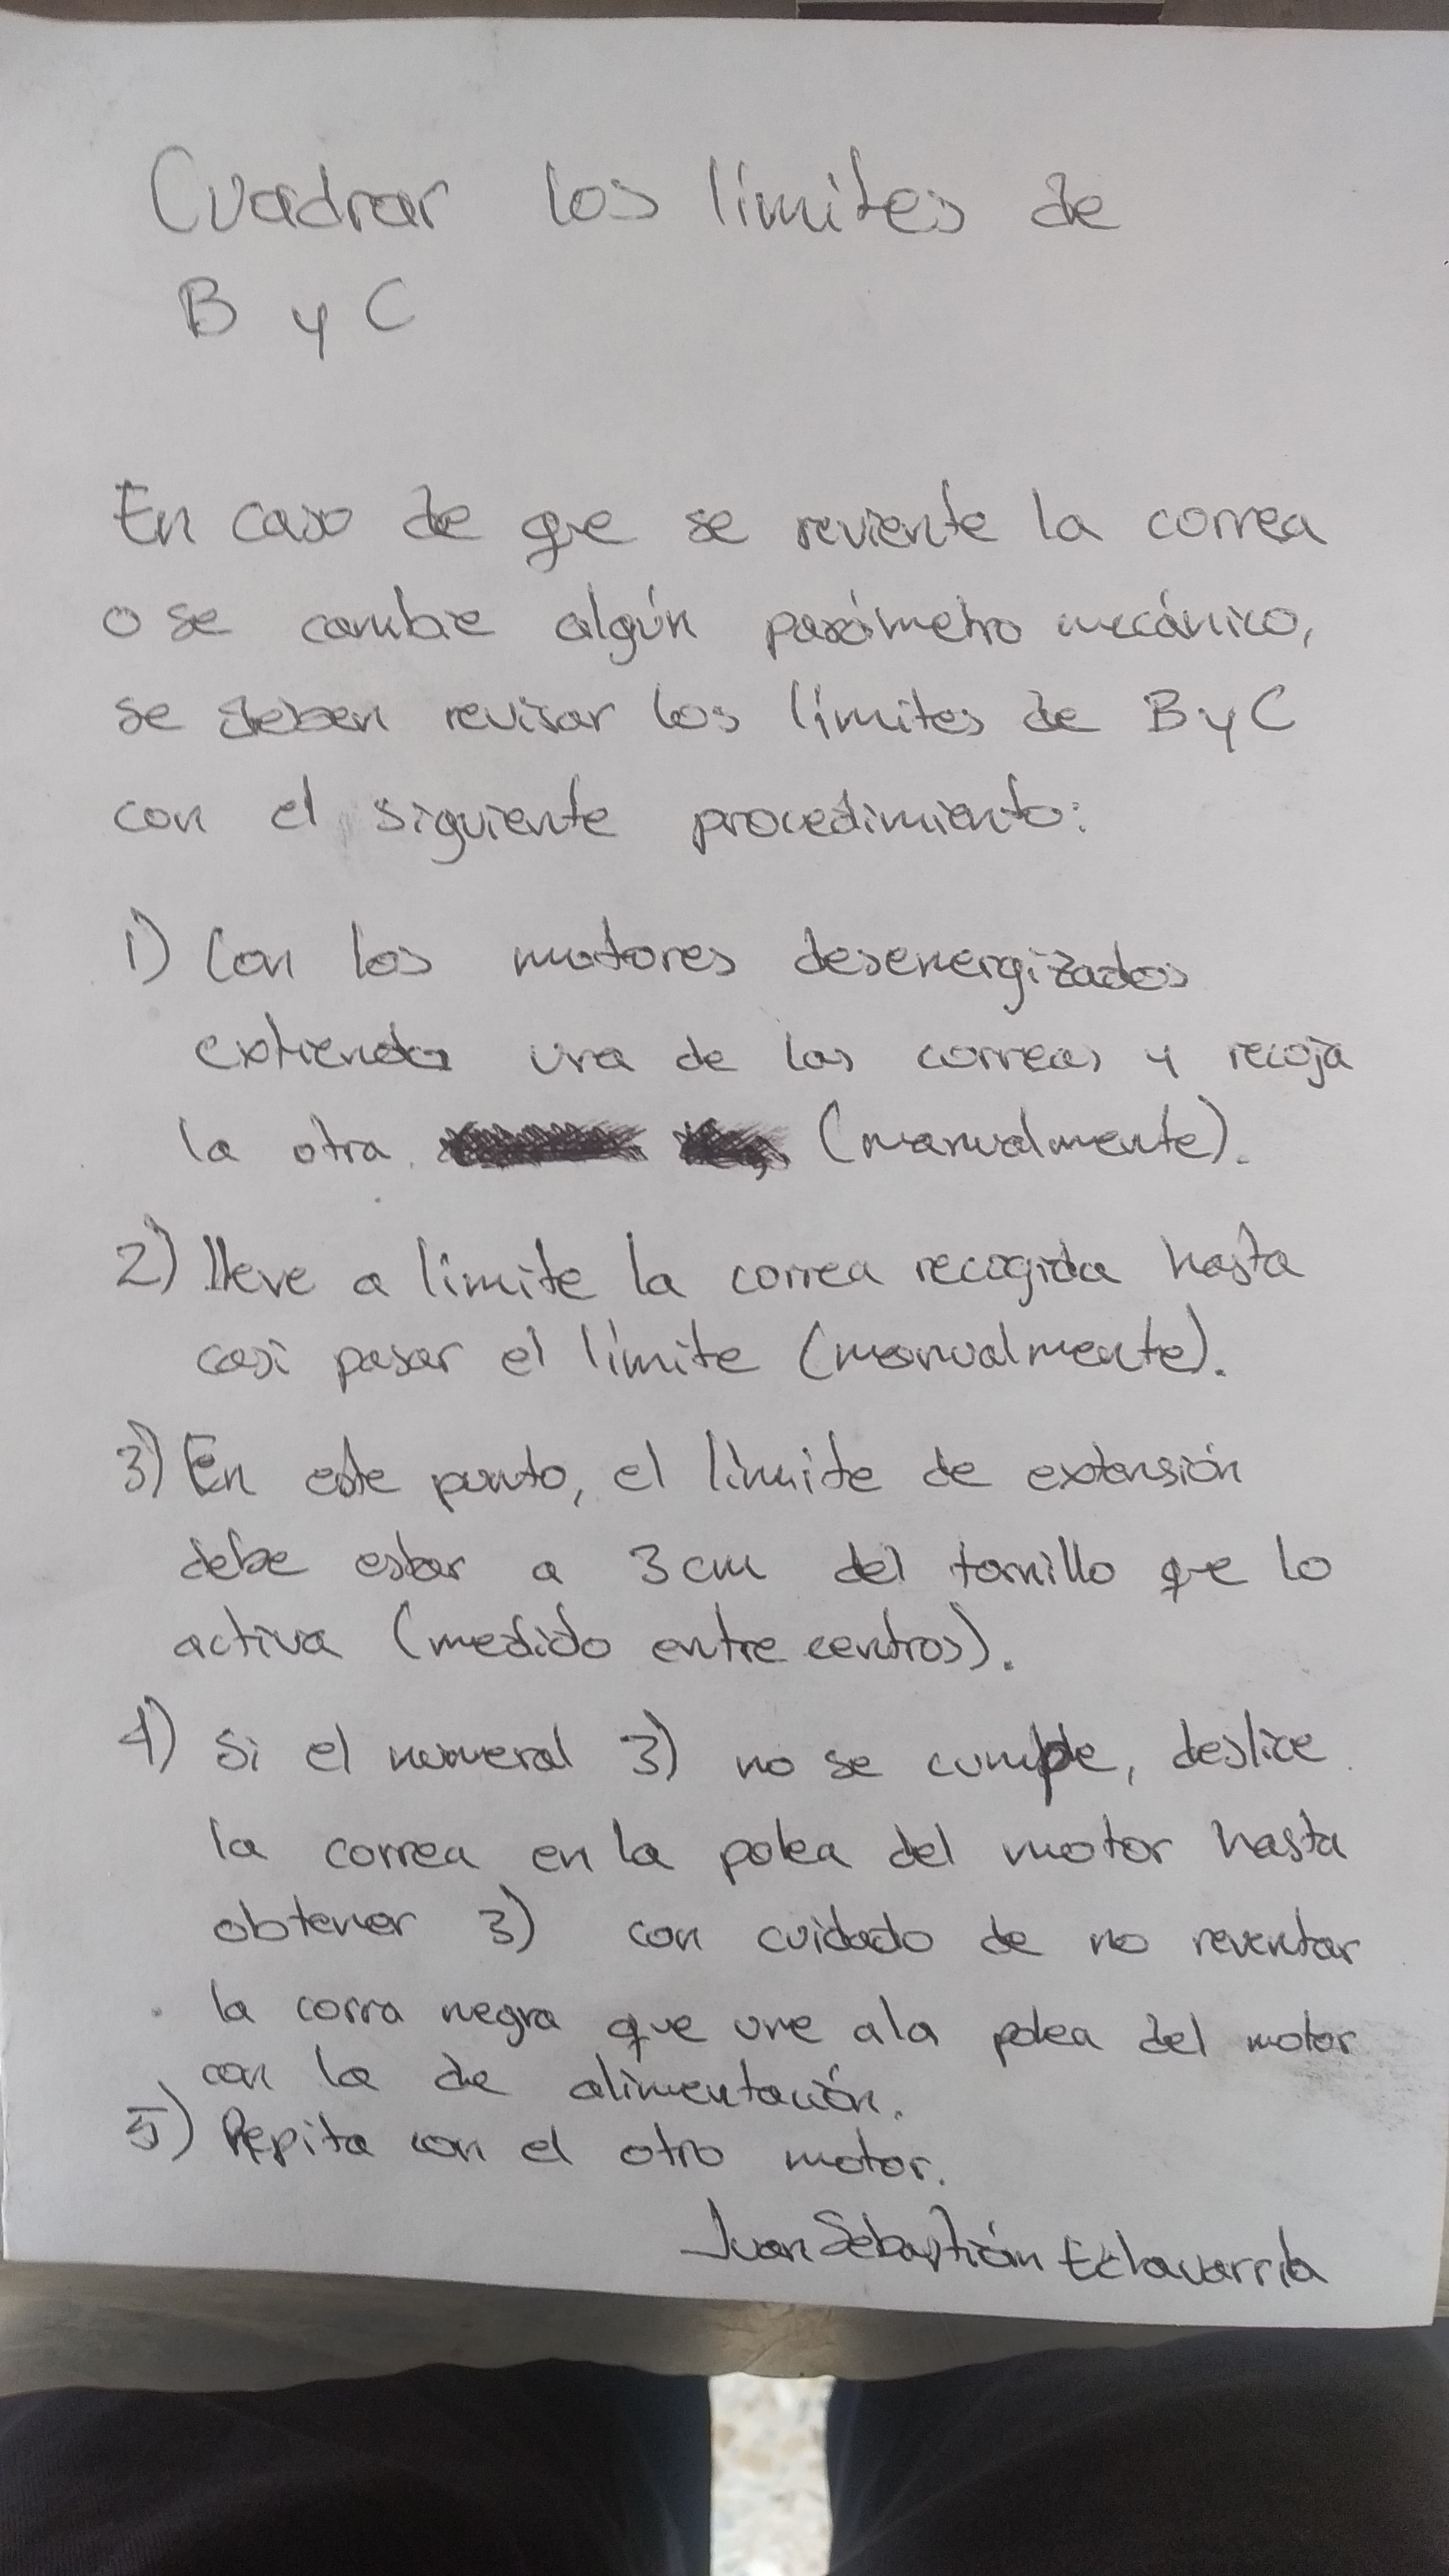 Cuadrar los límites de
B y C
En caso de que se reviente la correa
o se cambie algún parámetro mecánico,
se deben revisar los límites de B y C
con el siguiente procedimiento:
1) Con los motores desenergizados
extienda una de las correas y recoja
la otra (manualmente).
2) lleve a limite la correa recogida hasta
casi pasar el límite (manualmente).
3) En este punto, el límite de extensión
debe estar a 3 cm del tornillo que lo
activa (medido entre centros).
4) Si el numeral 3) no se cumple, deslice
la correa en la polea del motor hasta
obtener 3) con cuidado de no reventar
la corra negra que une a la polea del motor
con la de alimentación.
5) Repita con el otro motor.
Juan Sebastián Echavarría